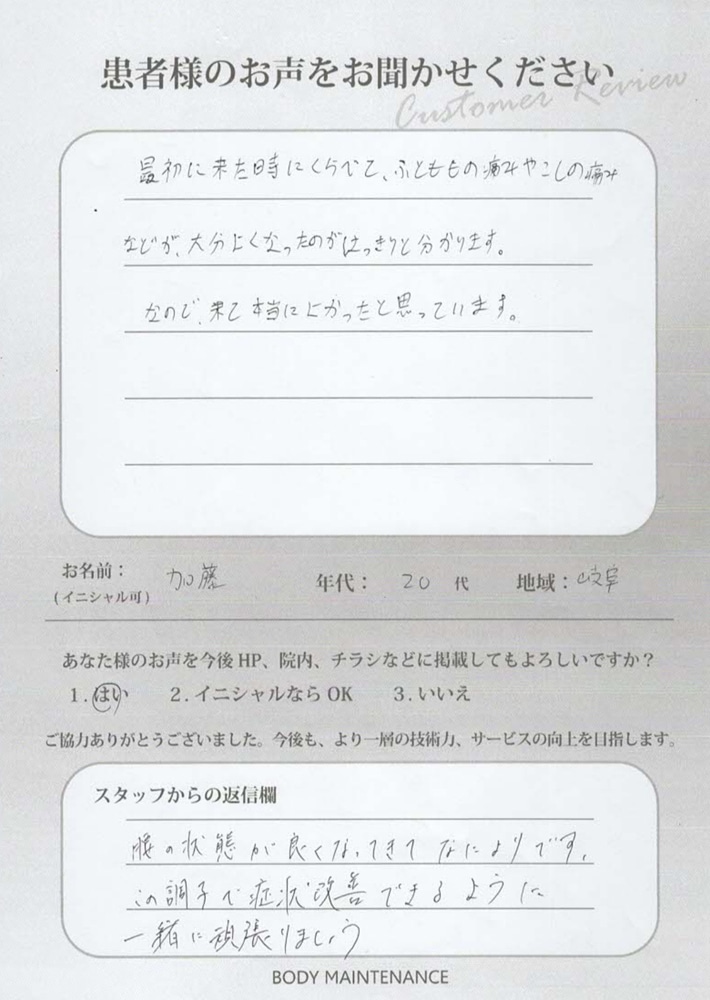 患者様のお声をお聞かせください
Customer Review
最初に来た時にくらべて、ふとももの痛みやこしの痛み
などが、大分よくなったのがはっきりと分かります。
なので、来て本当によかったと思っています。
お名前：加藤 年代：20代 地域：岐阜
(イニシャル可)
あなた様のお声を今後HP、院内、チラシなどに掲載してもよろしいですか？
1.はい 2.イニシャルならOK 3.いいえ
ご協力ありがとうございました。今後も、より一層の技術力、サービスの向上を目指します。
スタッフからの返信欄
腰の状態が良くなってきてなによりです。
この調子で症状改善できるように
一緒に頑張りましょう
BODY MAINTENANCE